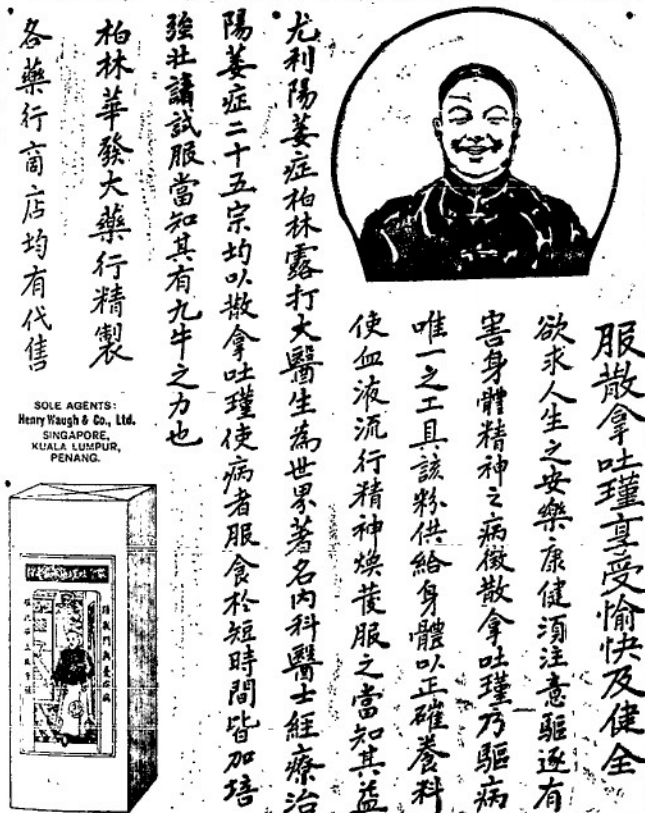 服散拿吐瑾享受愉快及健全
欲求人生之安樂康健須注意驅逐有
害身體精神之病徵散拿吐瑾乃驅病
唯一之工具該粉供給身體以正確養料
使血液流行精神煥發服之當知其益
尤利陽萎症柏林露打大醫生為世界著名內科醫士經療治
陽萎症二十五宗均以散拿吐瑾使病者服食於短時間皆加培
強壯請試服當知其有九牛之力也
柏林華發大藥行精製
各藥行商店均有代售
SOLE AGENTS:
Henry Waugh & Co., Ltd.
SINGAPORE,
KUALA LUMPUR,
PENANG.